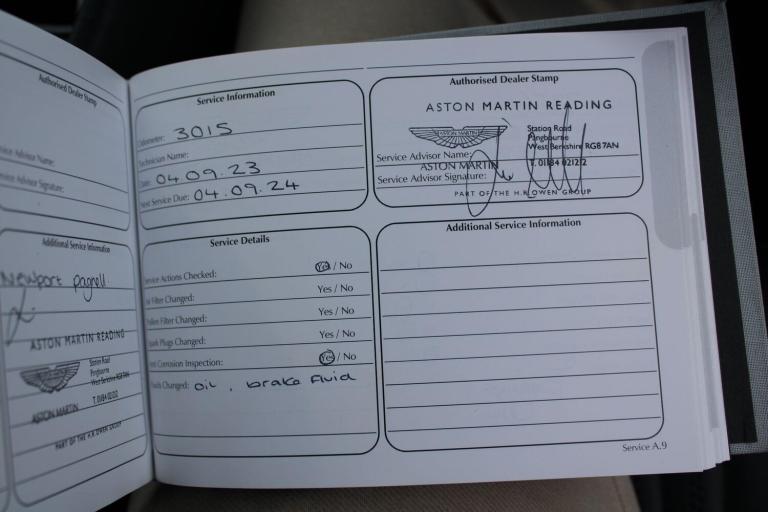 Authorised Dealer Stamp
Service Advisor Name:
Service Advisor Signature:
Additional Service Information
Newport Pagnell
ASTON MARTIN READING
Station Road
Pangbourne
West Berkshire RG8 7AN
ASTON MARTIN
PART OF THE H.R. OWEN GROUP
Service Information
Odometer: 3015
Technician Name:
Date: 04.09.23
Next Service Due: 04.09.24
Authorised Dealer Stamp
ASTON MARTIN READING
ASTON MARTIN
Station Road
Pangbourne
West Berkshire RG8 7AN
Service Advisor Name:
ASTON MARTIN
Service Advisor Signature:
PART OF THE H.R. OWEN GROUP
Service Details
Service Actions Checked: Yes / No
Oil Filter Changed: Yes / No
Pollen Filter Changed: Yes / No
Spark Plugs Changed: Yes / No
Anti Corrosion Inspection: Yes / No
Fluids Changed: oil , brake fluid
Additional Service Information
Service A.9